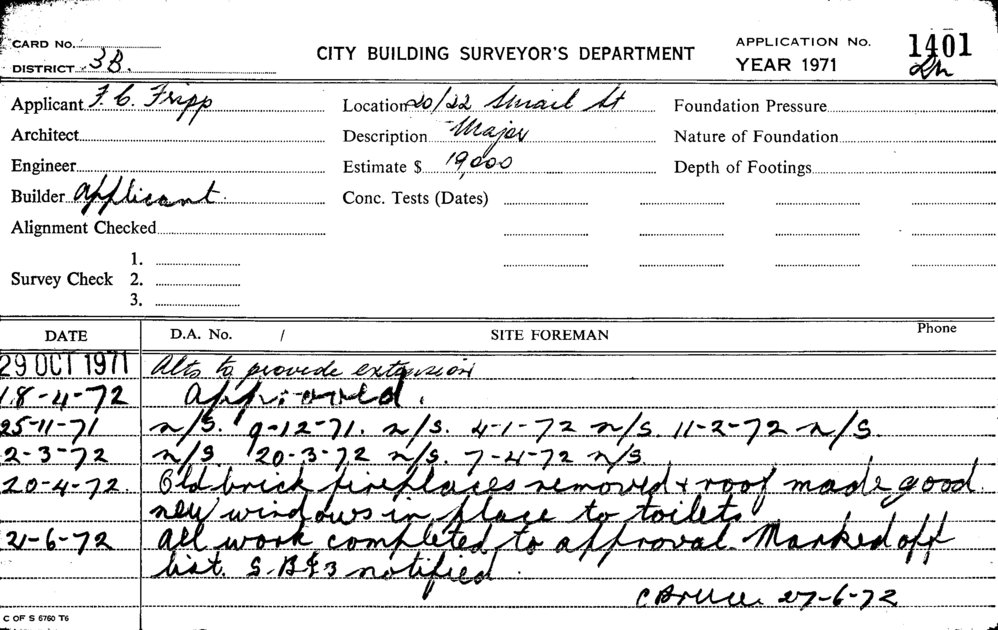 CARD NO.
CITY BUILDING SURVEYOR'S DEPARTMENT
APPLICATION No. 1401
DISTRICT 3B.
YEAR 1971
Applicant F. C. Fripp
Location 20/22 Smail St
Foundation Pressure
Architect
Description Major
Nature of Foundation
Engineer
Estimate $ 19,000
Depth of Footings
Builder Applicant.
Conc. Tests (Dates)
Alignment Checked
1.
Survey Check 2.
3.
DATE D.A. No. / SITE FOREMAN Phone
29 OCT 1971 Alts to provide extension
18-4-72 Approved.
25-11-71 n/S. 9-12-71. n/S. 4-1-72 n/S. 11-2-72 n/S.
2-3-72 n/S 20-3-72 n/S. 7-4-72 n/S.
20-4-72. Old brick fireplaces removed & roof made good.
new windows in place to toilets
21-6-72 All work completed to approval. Marked off
list. S.B&3 notified.
C Bruce. 27-6-72
C OF S 6760 T6